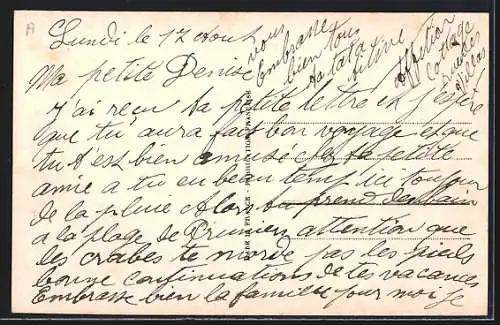 Lundi le 17 Aout
Ma petite Denise
J'ai reçu ta petite lettre et j'espère
que tu aura fait bon voyage et que
tu t'est bien amusé chez ta petite
amie a tu eu beau temp ici toujour
de la pluie Alors tu prend des bain
a la plage de attention que
les crabes te morde pas les pieds
bonne continuations de tes vacances
Embrasse bien la famille pour moi je
vous
Embrasse
bien tous
ta tata
affection
cottage
villas